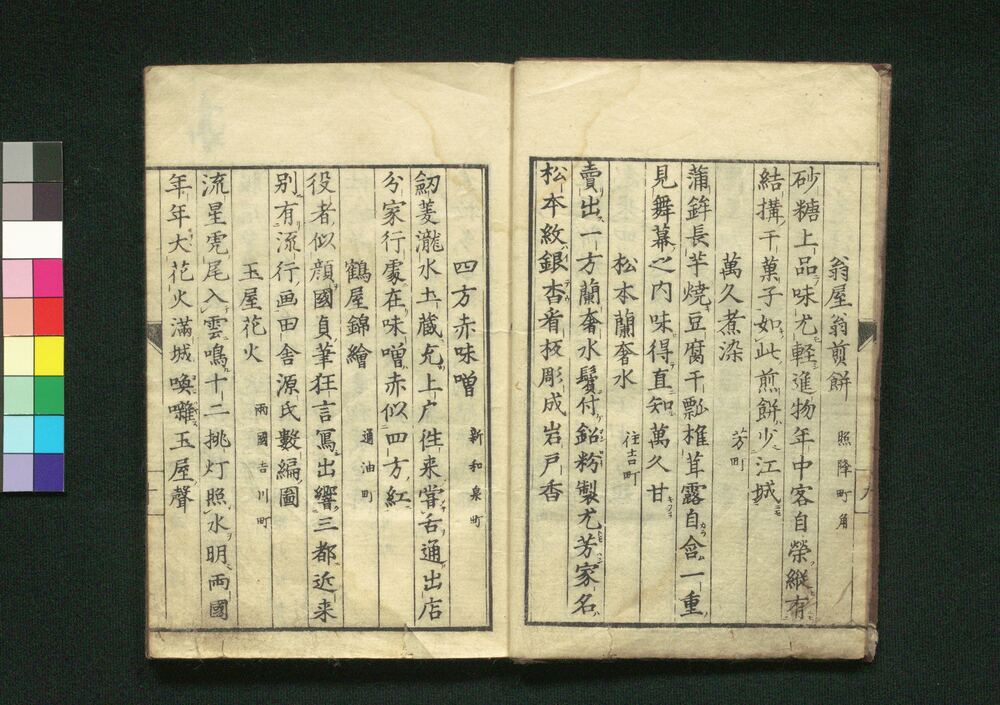 翁屋翁煎餅 照降町角
砂糖上品味尤軽進物年中客自榮縦有
結搆干菓子如此煎餅少江城
萬久煮染 芳町
蒲鉾長芋焼豆腐干瓢椎茸露自含一重
見舞幕之内味得直知萬久甘
松本蘭奢水 住吉町
賣出一方蘭奢水鬢付鉛粉製尤芳家名
松本紋銀杏看板彫成岩戸香
四方赤味噌 新和泉町
劔菱瀧水土蔵允上戸徃来嘗舌通出店
分家行處在味噌赤似四方紅
鶴屋錦繪 通油町
役者似顔國貞筆狂言寫出響三都近来
別有流行画田舎源氏數編圖
玉屋花火 両國吉川町
流星虎尾入雲鳴十二挑灯照水明両國
年年大花火滿城喚囃玉屋聲